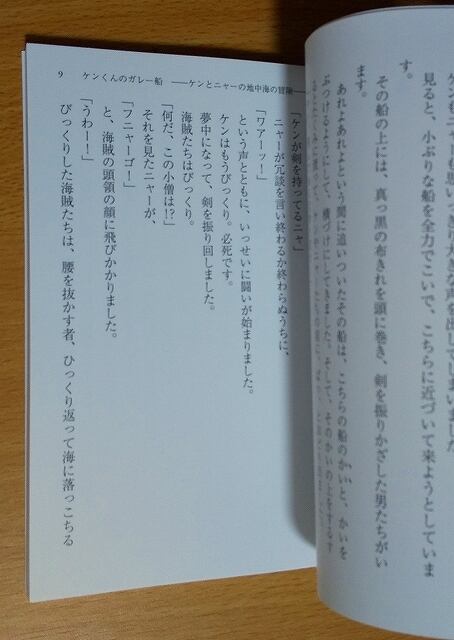 より大きな声を出してしまいました
見ると、小ぶりな船を全力でこいで、こちらに近づいて来ようとしていま
す。
その船の上には、真っ黒の布きれを頭に巻き、剣を振りかざした男たちがい
ます。
あれよあれよという間に追いついたその船は、こちらの船のかいと、かいを
ぶつけるようにして、横づけにしてきました。そして、そのかいの上をするす
9 ケンくんのガレー船 ――ケンとニャーの地中海の冒険――
「ケンが剣を持ってるニャ」
ニャーが冗談を言い終わるか終わらぬうちに、
「ワアーッ！」
という声とともに、いっせいに闘いが始まりました。
ケンはもうびっくり。必死です。
夢中になって、剣を振り回しました。
海賊たちはびっくり。
「何だ、この小僧は!?」
それを見たニャーが、
「フニャーゴ！」
と、海賊の頭領の顔に飛びかかりました。
「うわーー！」
びっくりした海賊たちは、腰を抜かす者、ひっくり返って海に落っこちる